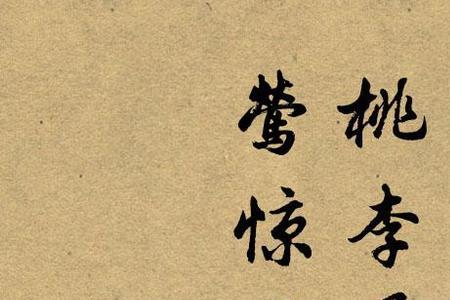 桃李
莺惊